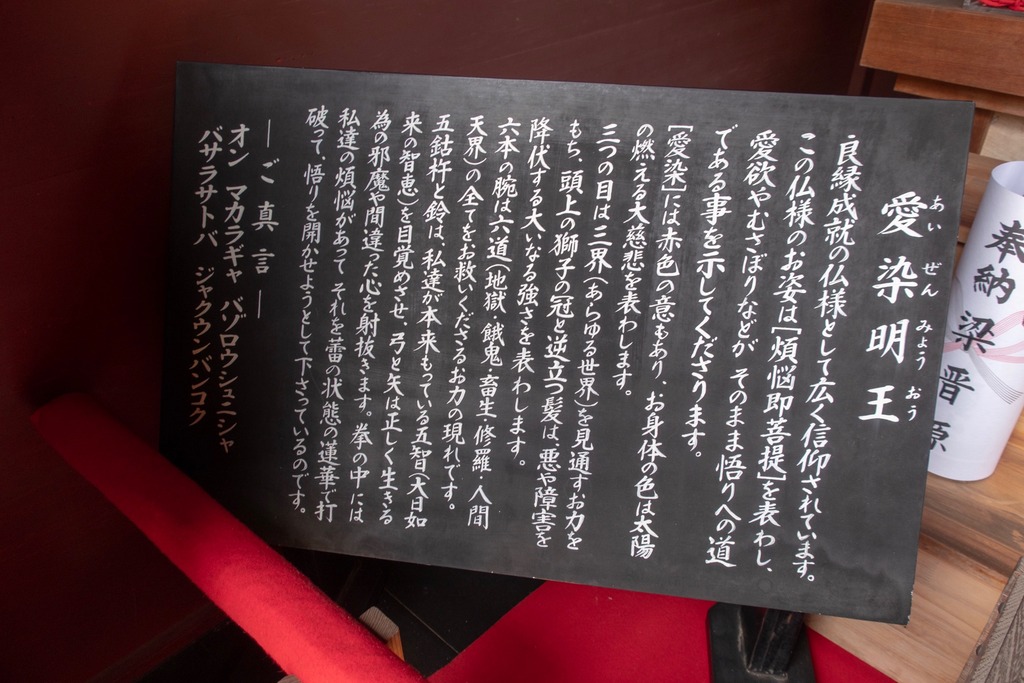 愛染明王
あいぜんみょうおう
良縁成就の仏様として広く信仰されています。
この仏様のお姿は[煩悩即菩提]を表わし、
愛欲やむさぼりなどが そのまま悟りへの道
である事を示してくださります。
[愛染]には赤色の意もあり、お身体の色は太陽
の燃える大慈悲を表わします。
三つの目は三界(あらゆる世界)を見通すお力を
もち、頭上の獅子の冠と逆立つ髪は、悪や障害を
降伏する大いなる強さを表わします。
六本の腕は六道(地獄・餓鬼・畜生・修羅・人間
天界)の全てをお救いくださるお力の現れです。
五鈷杵と鈴は、私達が本来もっている五智(大日如
来の智恵)を目覚めさせ 弓と矢は正しく生きる
為の邪魔や間違った心を射抜きます。拳の中には
私達の煩悩があって それを蕾の状態の蓮華で打
破って、悟りを開かせようとして下さっているのです。
―ご真言―
オン マカラギャ バゾロウシュニシャ
バサラサトバ ジャクウンバンコク
奉納 梁晋源